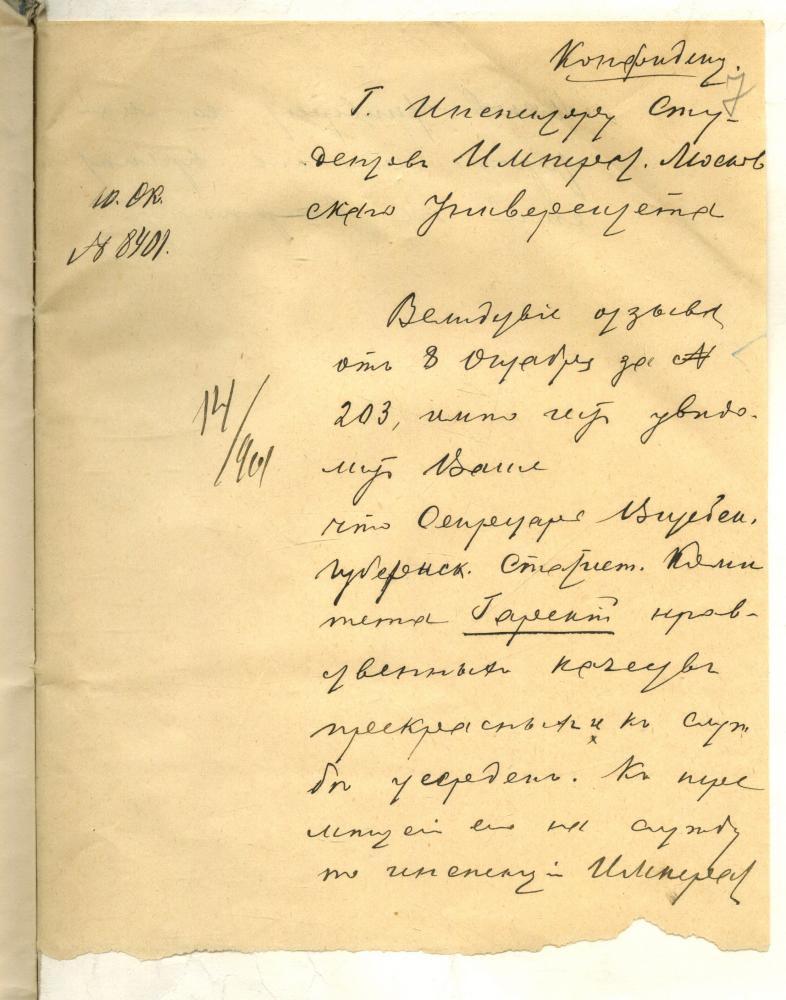 Конфиденц.
7
Г Инспектору Сту-
дентовъ Императ. Москов
скаго Университета
10. Ок.
№ 8401.
Вслѣдствіе отзыва
отъ 8 Октября за №
203, имѣю честь увѣдо-
мить Ваше
14/901
что Секретарь Витебск.
Губернск. Статист. Коми
тета нрав-
ственныхъ качествъ
прекрасныхъ и къ служ
бѣ усерденъ. Къ пере
мѣщенію его на службу
по инспекціи Императ